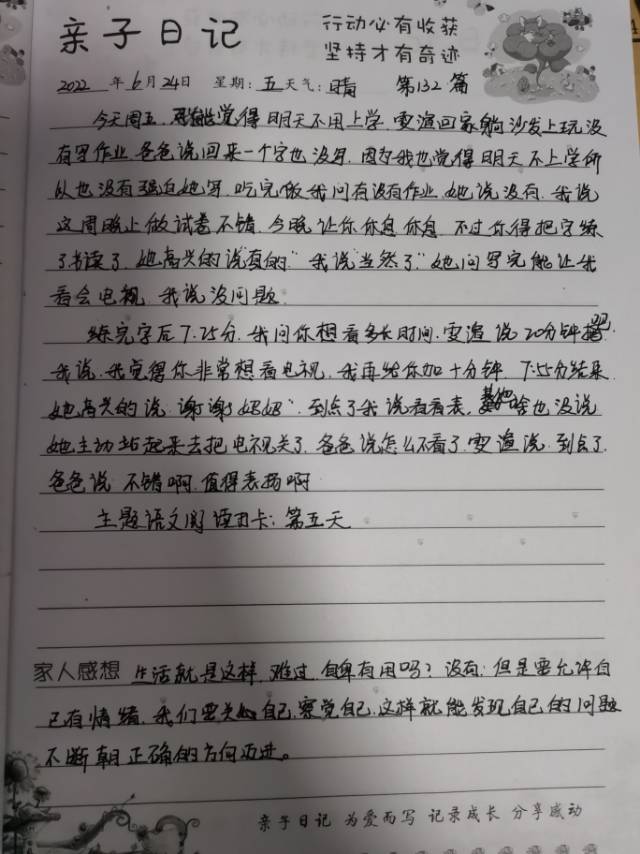 亲子日记
行动必有收获
坚持才有奇迹
2022 年 6 月 24 日 星期:五 天气:晴 第 132 篇
今天周五,可能觉得明天不用上学,雯遄回家躺沙发上玩没
有写作业,爸爸说回来一个字也没写,因为我也觉得明天不上学所
以也没有强迫她写,吃完饭我问有没有作业,她说没有,我说
这周晚上做试卷不错,今晚让你休息休息,不过你得把字练
了书读了,她高兴的说真的"我说当然了"她问写完能让我
看会电视,我说没问题。
练完字后7.25分,我问你想看多长时间,雯遄说20分钟吧
我说,我觉得你非常想看电视,我再给你加十分钟,7:55分结束
她高兴的说"谢谢妈妈",到点了我说看看表,啥也没说
她主动站起来去把电视关了,爸爸说怎么不看了,雯遄说,到点了,
爸爸说不错啊,值得表扬啊
主题语文阅读打卡:第五天
家人感想 生活就是这样,难过,自卑有用吗?没有;但是要允许自
己有情绪,我们要关心自己,察觉自己,这样就能发现自己的问题
不断朝正确的方向迈进。
亲子日记 为爱而写 记录成长 分享感动